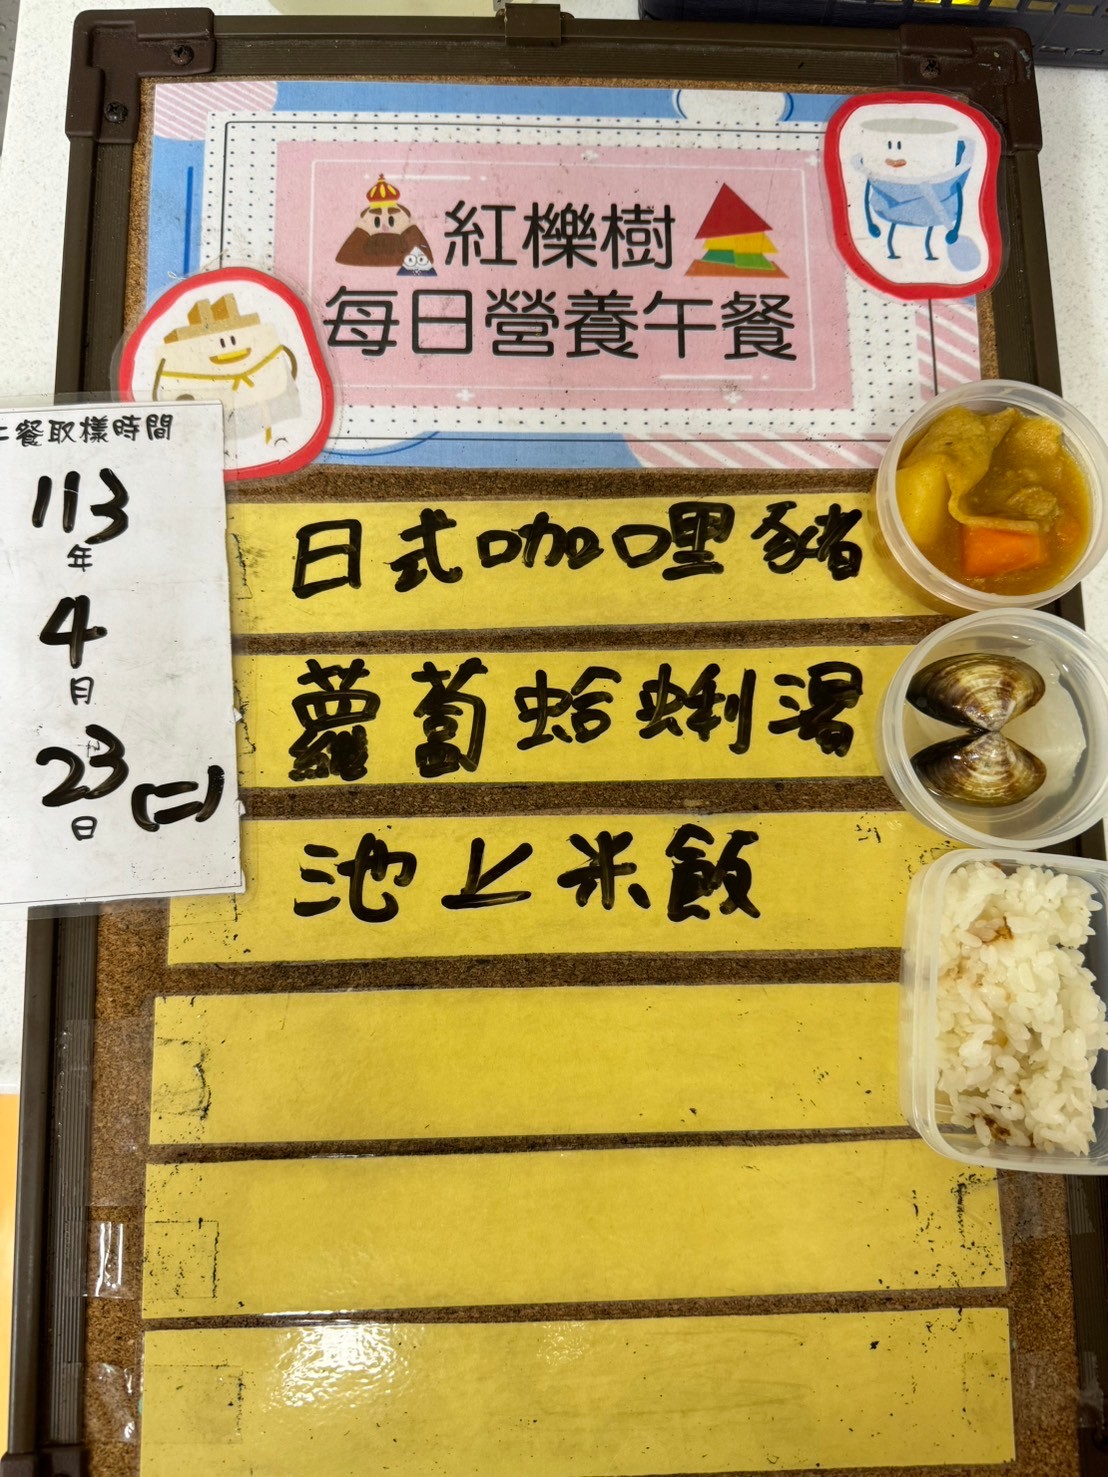 紅櫟樹
每日營養午餐
餐取樣時間
113
年
4
月
23
日
(二)
日式咖哩豬
蘿蔔蛤蜊湯
池上米飯